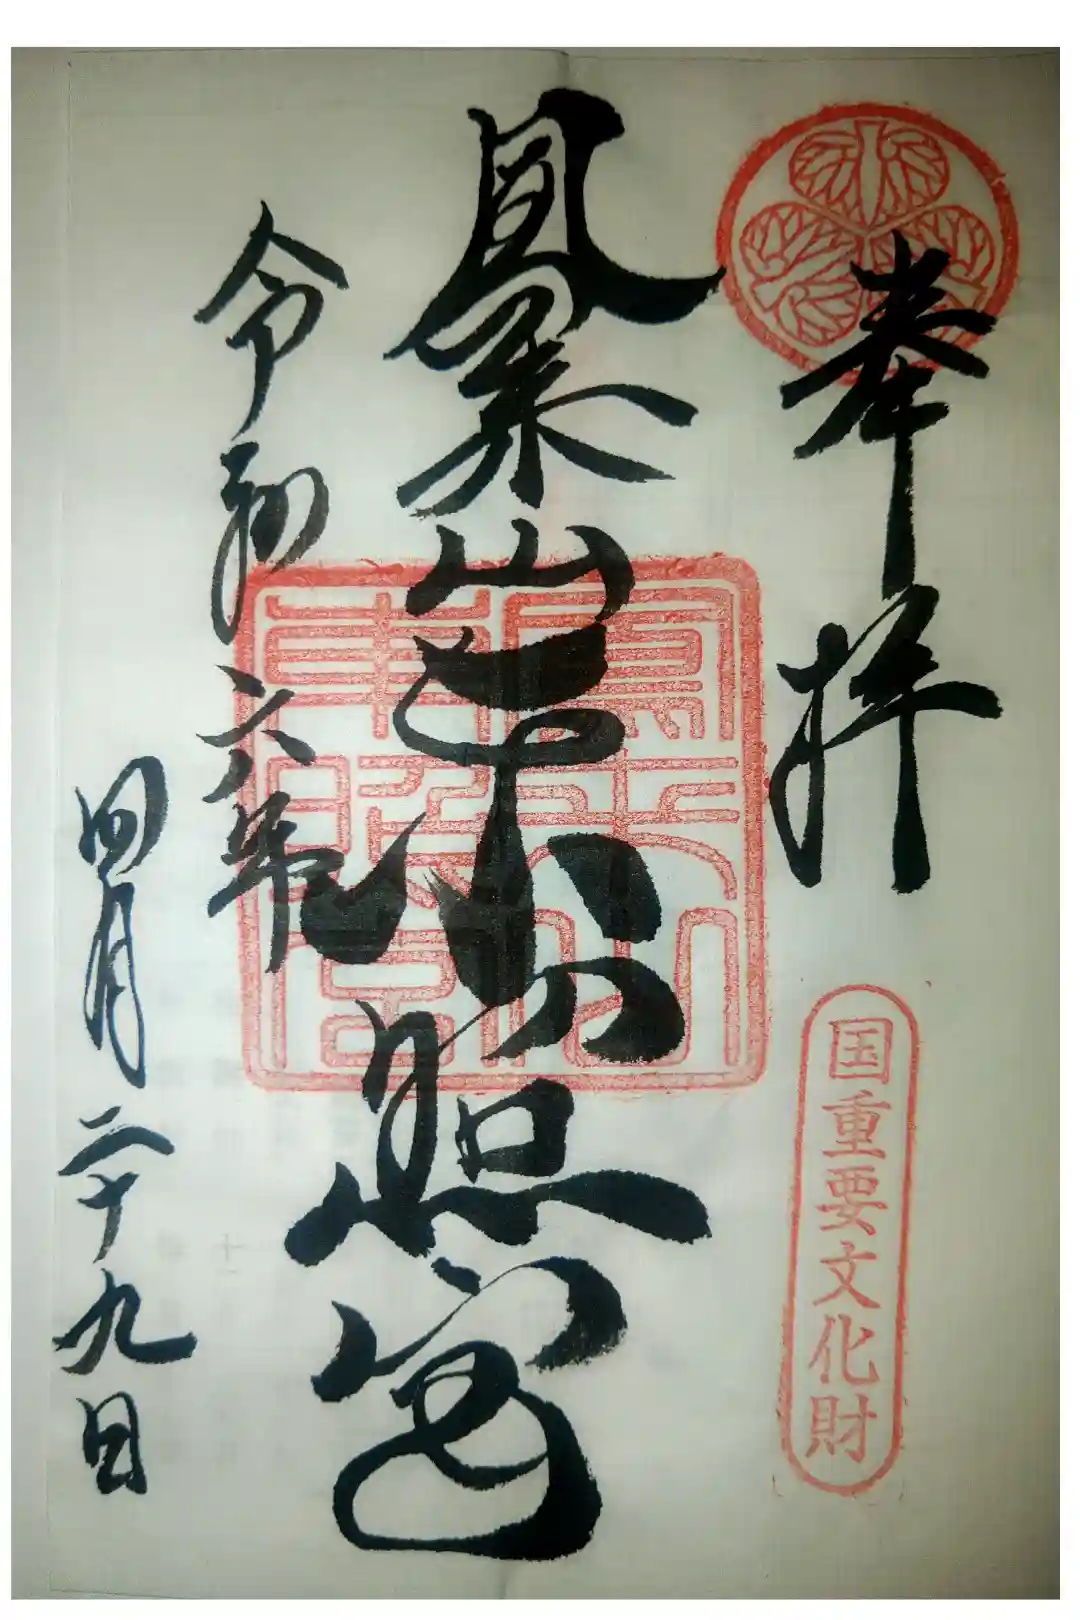 奉拝
国重要文化財
鳳来山東照宮
鳳来山東照宮
令和六年
四月二十九日